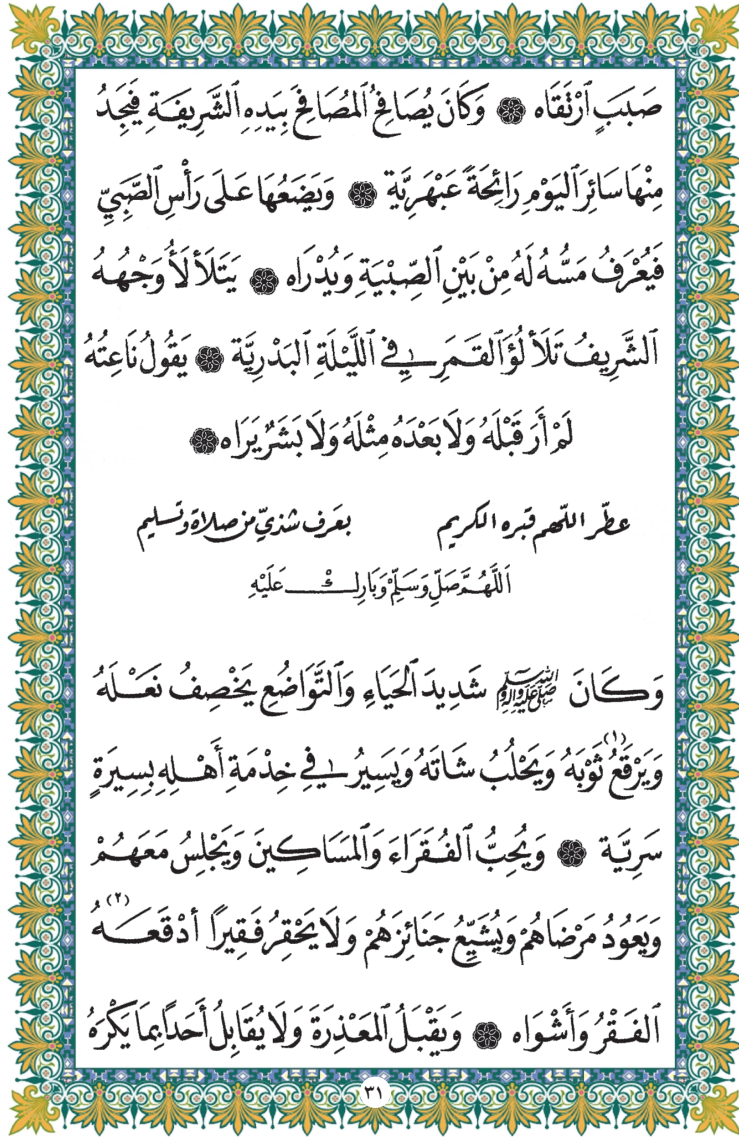 صَبَبٍ ٱرْتَقَاه ۞ وَكَانَ يُصَافِحُ ٱلمُصَافِحَ بِيَدِهِ ٱلشَّرِيفَةِ فَيَجِدُ
مِنْهَا سَائِرَ ٱليَوْمِ رَائِحَةً عَبْهَرِيَّة ۞ وَيَضَعُهَا عَلَى رَأْسِ ٱلصَّبِيِّ
فَيُعْرَفُ مَسُّهُ لَهُ مِنْ بَيْنِ ٱلصِّبْيَةِ وَيُدْرَاه ۞ يَتَلَأْلَأُ وَجْهُهُ
ٱلشَّرِيفُ تَلَأْلُؤَ ٱلقَمَرِ فِي ٱللَّيْلَةِ ٱلبَدْرِيَّة ۞ يَقُولُ نَاعِتُهُ
لَمْ أَرَ قَبْلَهُ وَلَا بَعْدَهُ مِثْلَهُ وَلَا بَشَرٌ يَرَاه ۞
عطّر اللّهم قبره الكريم بعرف شذيّ من صلاة وتسليم
اَللَّهُمَّ صَلِّ وَسَلِّمْ وَبَارِكْ عَلَيْهِ
وَكَانَ ﷺ شَدِيدَ ٱلحَيَاءِ وَٱلتَّوَاضُعِ يَخْصِفُ نَعْلَهُ
وَيَرْقَعُ (١) ثَوْبَهُ وَيَحْلُبُ شَاتَهُ وَيَسِيرُ فِي خِدْمَةِ أَهْلِهِ بِسِيرَةٍ
سَرِيَّة ۞ وَيُحِبُّ ٱلفُقَرَاءَ وَٱلمَسَاكِينَ وَيَجْلِسُ مَعَهُمْ
وَيَعُودُ مَرْضَاهُمْ وَيُشَيِّعُ جَنَائِزَهُمْ وَلَا يَحْقِرُ فَقِيراً أَدْقَعَهُ (٢)
ٱلفَقْرُ وَأَشْوَاه ۞ وَيَقْبَلُ ٱلمَعْذِرَةَ وَلَا يُقَابِلُ أَحَداً بِمَا يَكْرَهُ
٣١